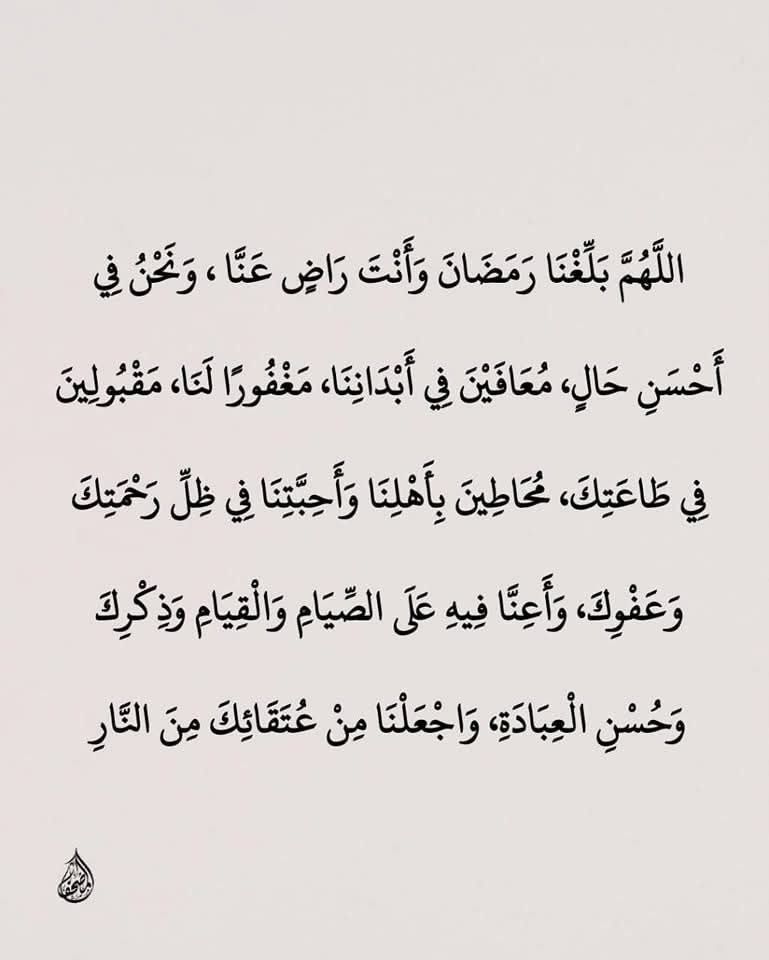 اللَّهُمَّ بَلِّغْنَا رَمَضَانَ وَأَنْتَ رَاضٍ عَنَّا ، وَنَحْنُ فِي
أَحْسَنِ حَالٍ، مُعَافَيْنَ فِي أَبْدَانِنَا، مَغْفُورًا لَنَا، مَقْبُولِينَ
فِي طَاعَتِكَ، مُحَاطِينَ بِأَهْلِنَا وَأَحِبَّتِنَا فِي ظِلِّ رَحْمَتِكَ
وَعَفْوِكَ، وَأَعِنَّا فِيهِ عَلَى الصِّيَامِ وَالْقِيَامِ وَذِكْرِكَ
وَحُسْنِ الْعِبَادَةِ، وَاجْعَلْنَا مِنْ عُتَقَائِكَ مِنَ النَّارِ